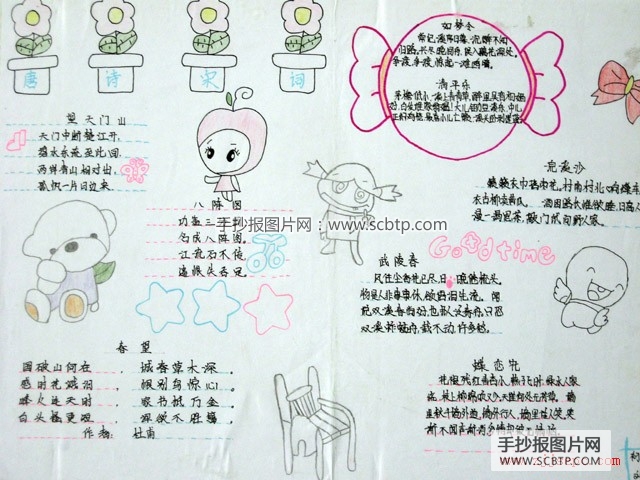 唐 诗 宋 词
望天门山
天门中断楚江开，
碧水东流至此回。
两岸青山相对出，
孤帆一片日边来。
八阵图
功盖三分
名成八阵图。
江流石不
遗恨失吞吴
春望
国破山河在，城春草木深。
感时花溅泪，恨别鸟惊心。
烽火连天时，家书抵万金。
白头搔更短，浑欲不胜簪。
作者：杜甫
如梦令
常记溪亭日暮，沉醉不知
归路，兴尽晚回舟，误入藕花深处。
争渡，争渡，惊起一滩鸥鹭。
清平乐
茅檐低小，溪上青青草，醉里吴音相媚
浣溪沙
簌簌衣巾落枣花，村南村北响缲车
酒困路长惟欲睡，日高人
敲门试问野人家。
Good time
武陵春
风住尘香花已尽，日晚倦梳头。
物是人非事事休，欲语泪先流。闻
说双溪春尚好，也拟泛轻舟，只恐
双溪舴艋舟，载不动，许多愁。
蝶恋花
花褪残红青杏小，燕子飞时，绿水人家
手抄报图片网：www.scbtp.com
手抄报图片网
WWW.SCBTP.COM